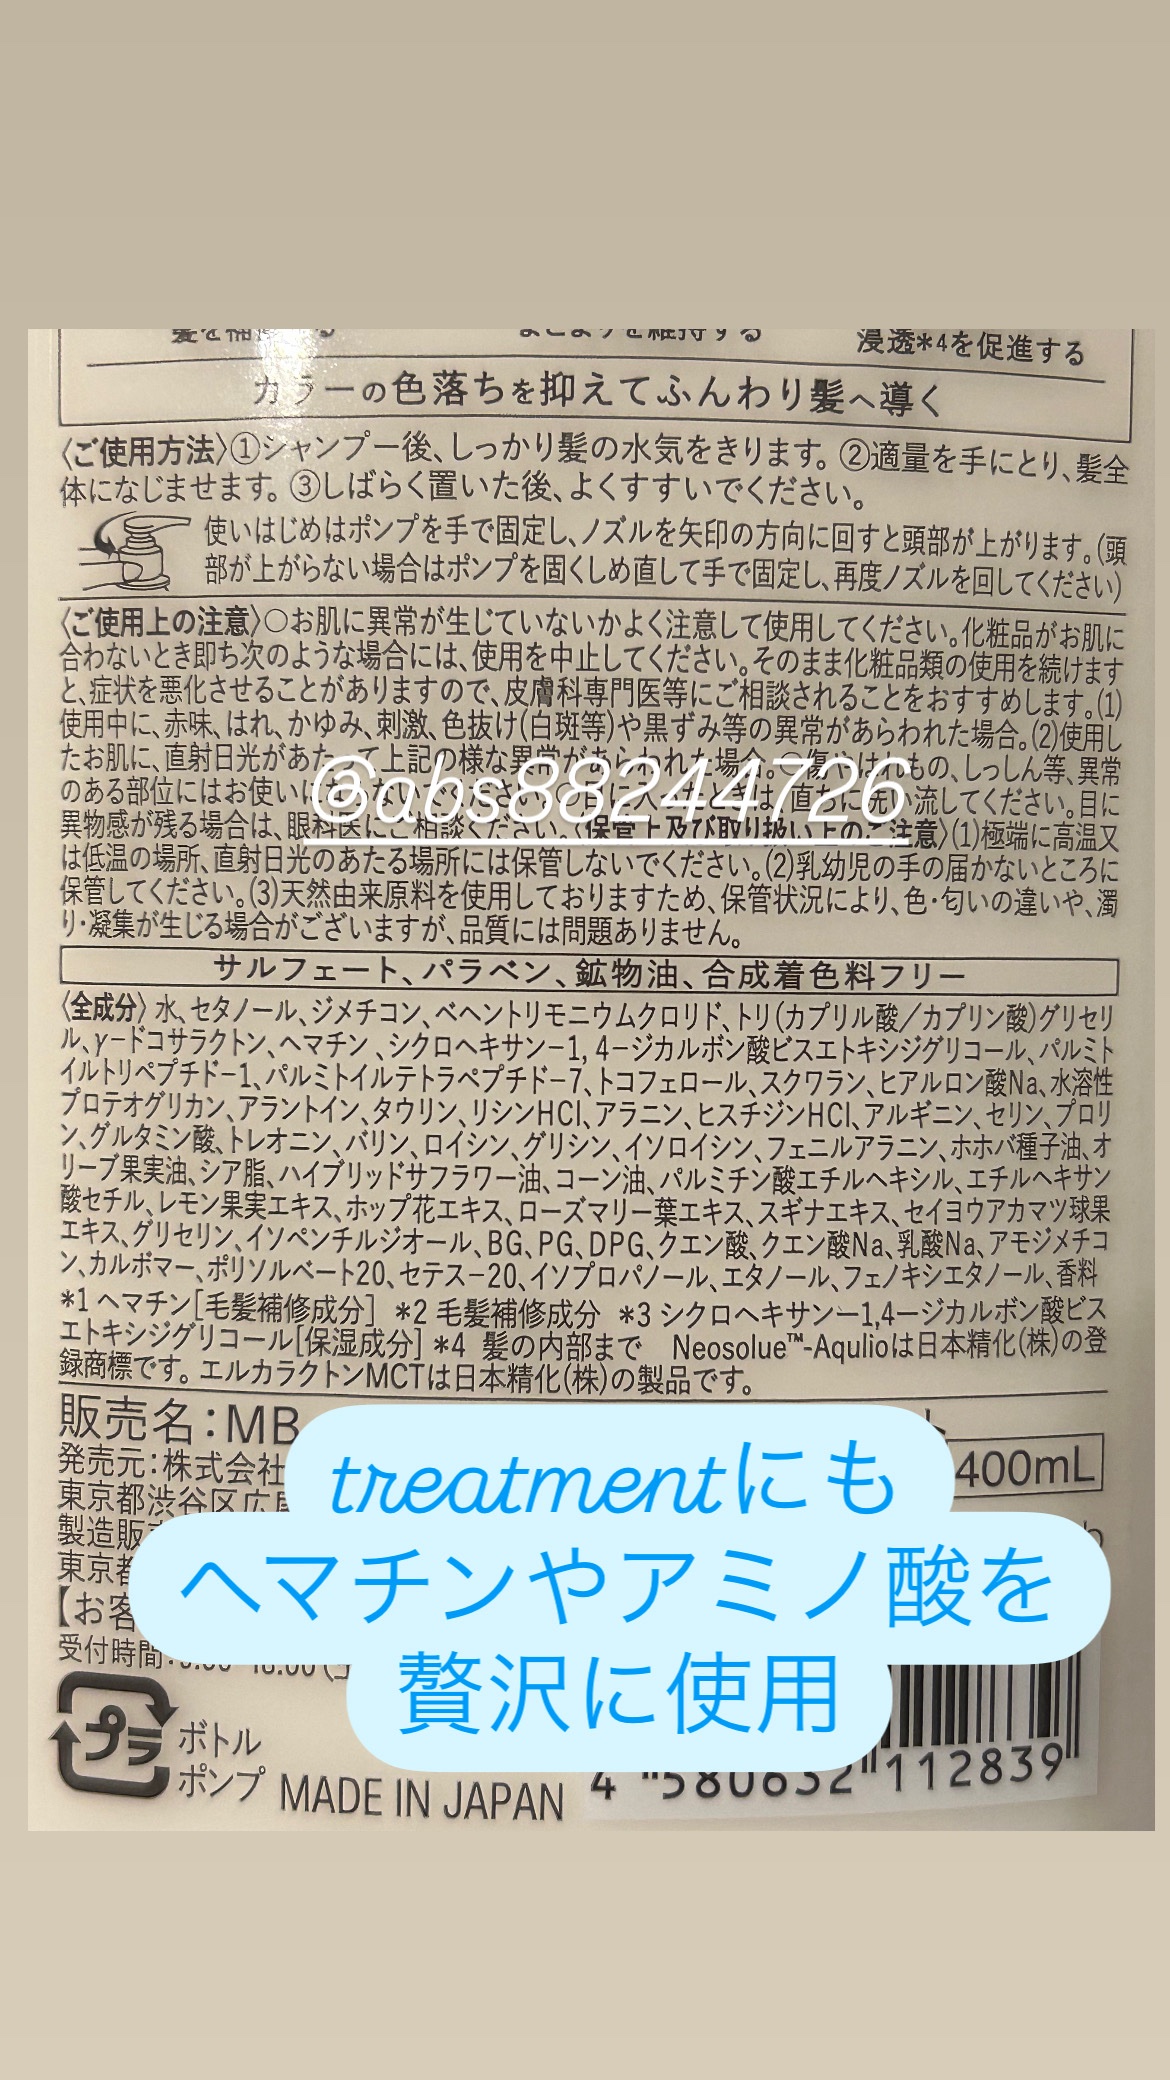 浸透*4を促進する
カラーの色落ちを抑えてふんわり髪へ導く
〈ご使用方法〉①シャンプー後、しっかり髪の水気をきります。②適量を手にとり、髪全
体になじませます。③しばらく置いた後、よくすすいでください。
使いはじめはポンプを手で固定し、ノズルを矢印の方向に回すと頭部が上がります。(頭
部が上がらない場合はポンプを固くしめ直して手で固定し、再度ノズルを回してください)
〈ご使用上の注意〉○お肌に異常が生じていないかよく注意して使用してください。化粧品がお肌に
合わないとき即ち次のような場合には、使用を中止してください。そのまま化粧品類の使用を続けます
と、症状を悪化させることがありますので、皮膚科専門医等にご相談されることをおすすめします。(1)
使用中に、赤味、はれ、かゆみ、刺激、色抜け(白斑等)や黒ずみ等の異常があらわれた場合。(2)使用し
たお肌に、直射日光があたって上記の様な異常があらわれた場合。○傷やはれもの、しっしん等、異常
@abs88244726
のある部位にはお使いに 直ちに洗い流してください。目に
異物感が残る場合は、眼科医にご相談ください。〈保管上及び取り扱い上のご注意〉(1)極端に高温又
は低温の場所、直射日光のあたる場所には保管しないでください。(2)乳幼児の手の届かないところに
保管してください。(3)天然由来原料を使用しておりますため、保管状況により、色・匂いの違いや、濁
り・凝集が生じる場合がございますが、品質には問題ありません。
サルフェート、パラベン、鉱物油、合成着色料フリー
〈全成分〉水、セタノール、ジメチコン、ベヘントリモニウムクロリド、トリ(カプリル酸/カプリン酸)グリセリ
ル、γードコサラクトン、ヘマチン、シクロヘキサンー1, 4ージカルボン酸ビスエトキシジグリコール、パルミト
イルトリペプチドー1、パルミトイルテトラペプチドー7、トコフェロール、スクワラン、ヒアルロン酸Na、水溶性
プロテオグリカン、アラントイン、タウリン、リシンHCl、アラニン、ヒスチジンHCl、アルギニン、セリン、プロリ
ン、グルタミン酸、トレオニン、バリン、ロイシン、グリシン、イソロイシン、フェニルアラニン、ホホバ種子油、オ
リーブ果実油、シア脂、ハイブリッドサフラワー油、コーン油、パルミチン酸エチルヘキシル、エチルヘキサン
酸セチル、レモン果実エキス、ホップ花エキス、ローズマリー葉エキス、スギナエキス、セイヨウアカマツ球果
エキス、グリセリン、イソペンチルジオール、BG、PG、DPG、クエン酸、クエン酸Na、乳酸Na、アモジメチコ
ン、カルボマー、ポリソルベート20、セテスー20、イソプロパノール、エタノール、フェノキシエタノール、香料
*1 ヘマチン[毛髪補修成分] *2 毛髪補修成分 *3 シクロヘキサンー1,4ージカルボン酸ビス
エトキシジグリコール[保湿成分] *4 髪の内部まで Neosolue™-Aqulioは日本精化(株)の登
録商標です。エルカラクトンMCTは日本精化(株)の製品です。
販売名:MB
発売元:株式会社
400mL
東京都渋谷区広
製造販
東京都
【お客
受付時間:
treatmentにも
ヘマチンやアミノ酸を
贅沢に使用
プラ
ボトル
ポンプ
MADE IN JAPAN
4 580632 112839